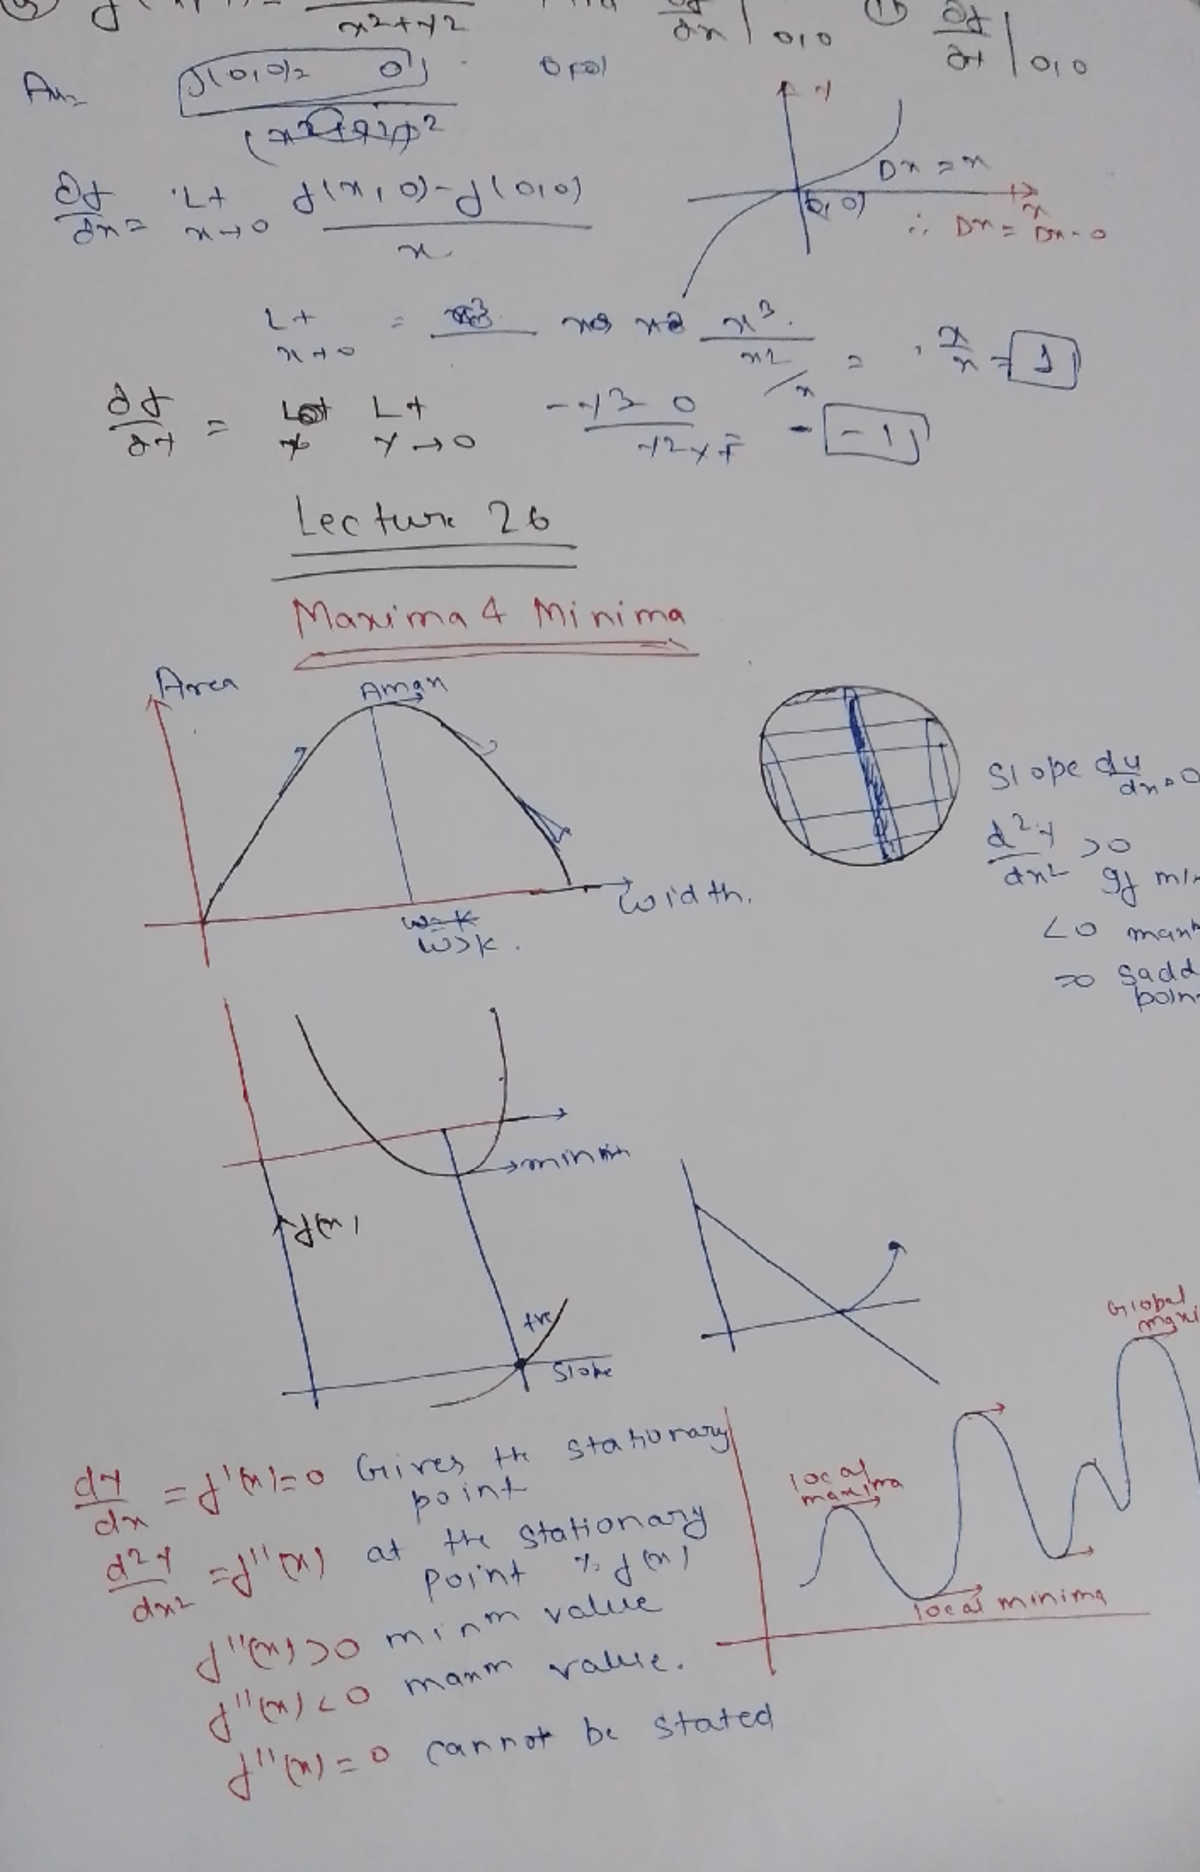 x²+y²
∂x | 0,0
∂f/∂y | 0,0
Ans
f(0,0)= 0
y
Dx = x
(0,0)
x
∴ Dx = Dx-0
∂f/∂x = Lt x→0 f(x,0)-f(0,0) / x
Lt x→0 = x³ / x² / x = x/x = 1
∂f/∂y = Lt y→0 -y³-0 / y²×y = -1
Lecture 26
Maxima & Minima
Area
Amax
Width.
W=k
W>k.
Slope dy/dx = 0
d²y/dx² >0
<0
=0
minm
f(x)
+ve
Slope
Global
local maxima
local minima
dy/dx = f'(x)=0 Gives the stationary
point
d²y/dx² = f''(x) at the stationary
point % f(x)
f''(x)>0 minm value
f''(x)<0 maxm value.
f''(x)=0 cannot be stated